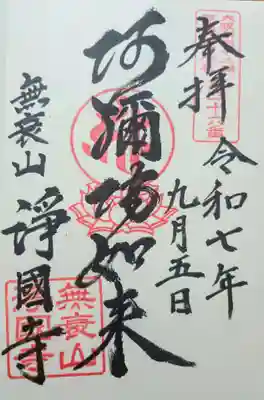 奉拝
令和七年
九月五日
阿彌陀如来
無衰山
淨國寺
無衰山
淨國寺